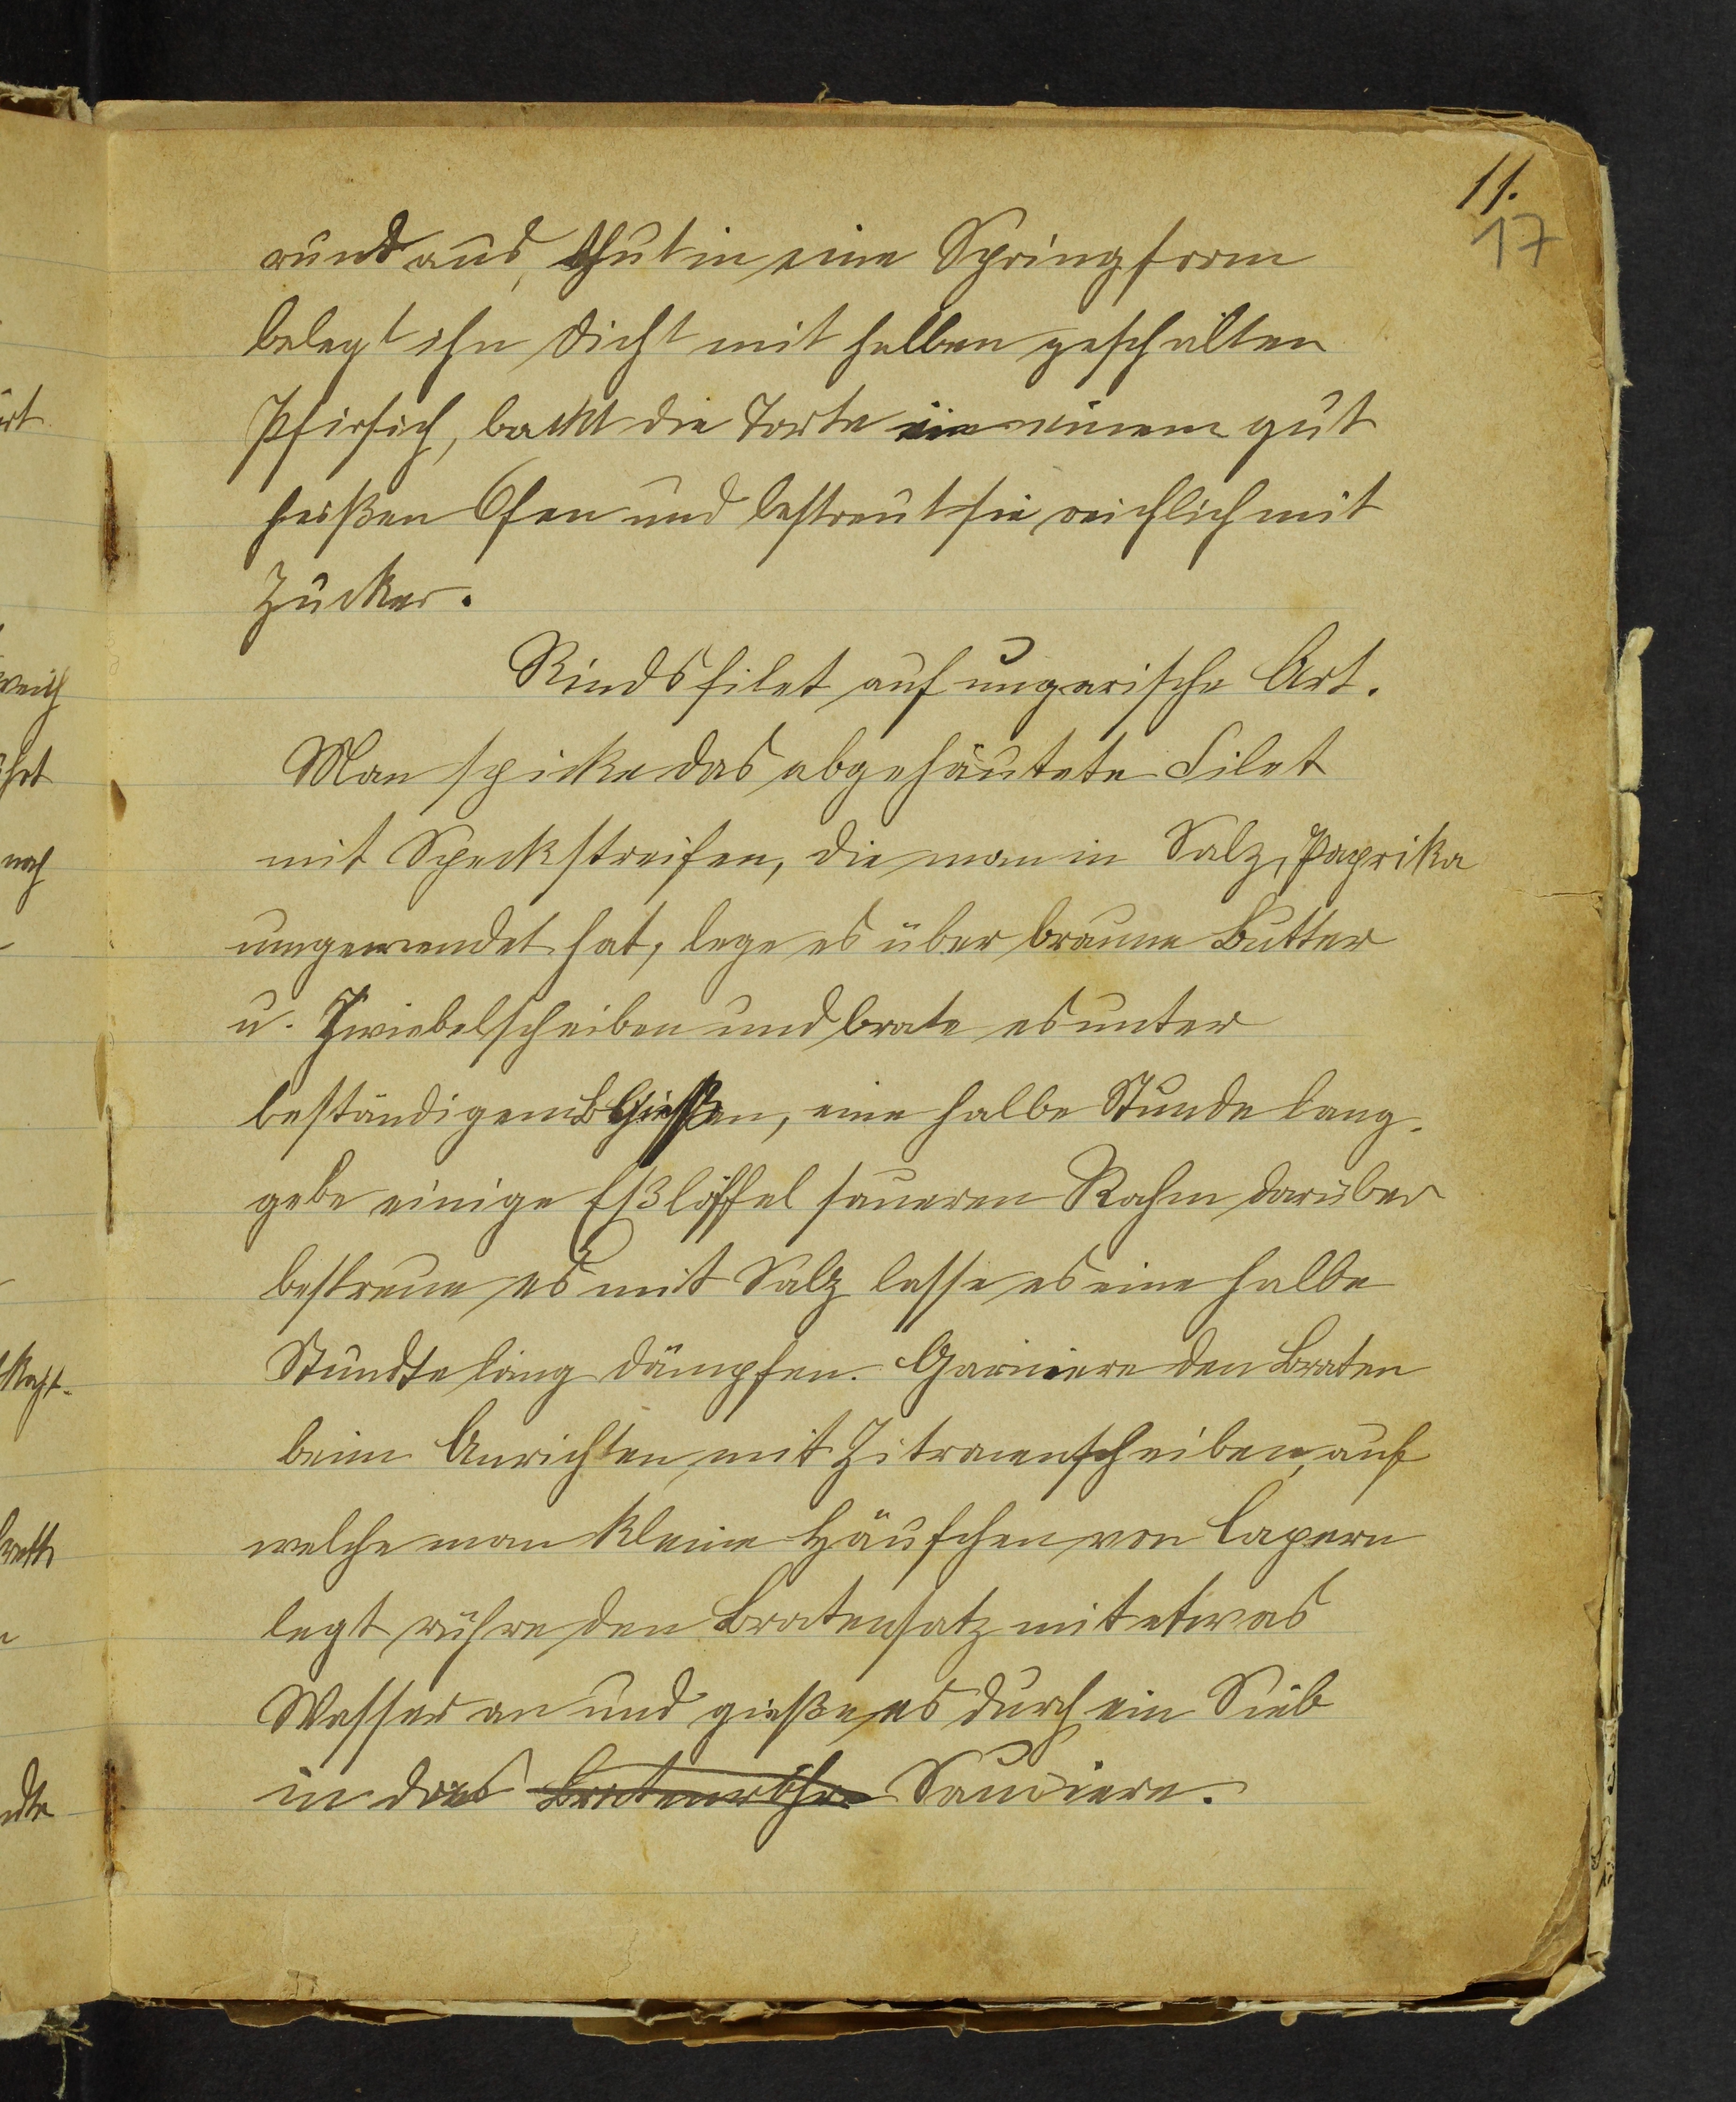 11.
17
rund aus, thut in eine Springform
belegt ihn dicht mit halben geschälten
Pfirsich, backt die Torte in einem gut
heißen Ofen und bestreut sie reichlich mit
Zucker.
Rindsfilet auf ungarische Art.
Man spicke das abgehäutete Filet
mit Speckstreifen, die man in Salz, Paprika
umgewendet hat, lege es über braune Butter
u. Zwiebelscheiben und brate es unter
beständigem Gießen, eine halbe Stunde lang.
gebe einige Eßlöffel saueren Rahm darüber
bestreue es mit Salz lasse es eine halbe
Stunde lang dämpfen. Garniere den Braten
beim Anrichten, mit Zitronenscheiben, auf
welche man kleine Häufchen von Capern
legt rühre den Bratensatz mit etwas
Wasser an und gieße es durch ein Sieb
in das Bratenrohr Sauciere.